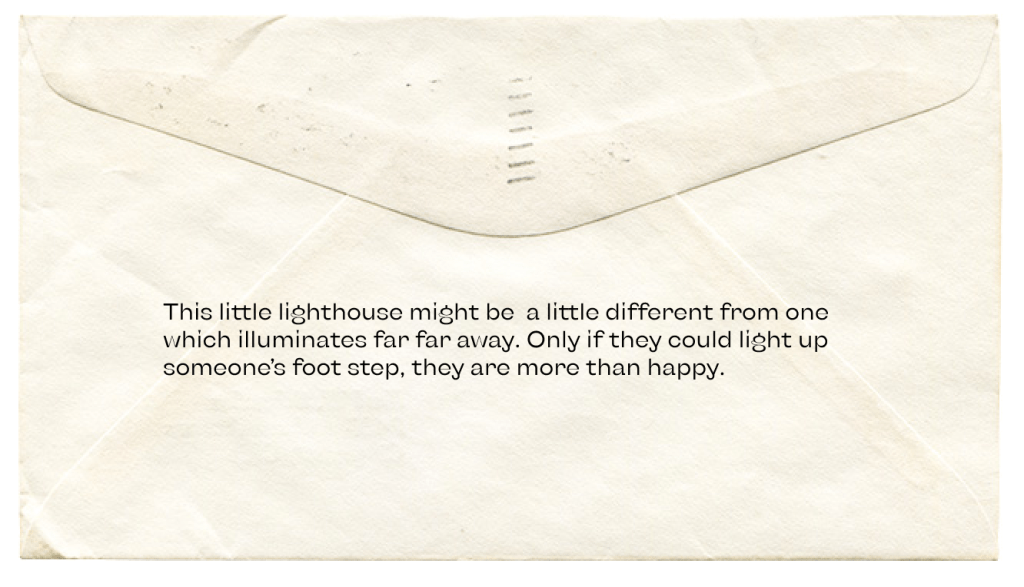 This little lighthouse might be  a little different from one
which illuminates far far away. Only if they could light up
someone’s foot step, they are more than happy.